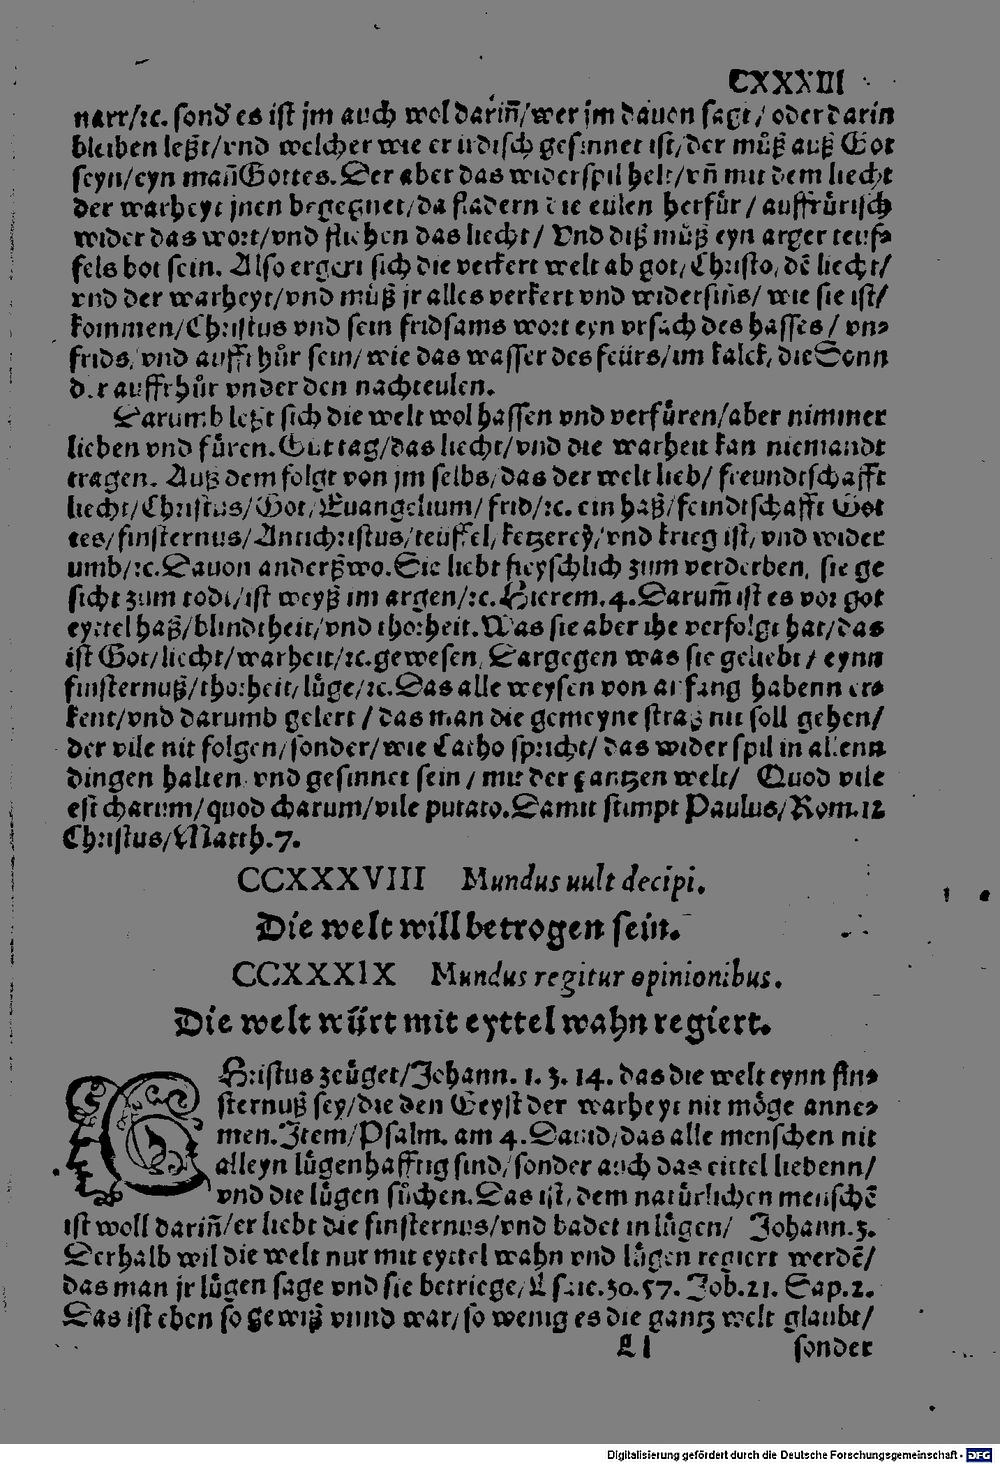 CXXXIII
narr/ꝛc. sond̕ es ist jm auch wol dariñ/wer jm dauon sagt/oder darin
bleiben leßt/vnd welcher wie er irdisch gesinnet ist/der můß auß Got
seyn/eyn mañ Gottes. Der aber das widerspil helt/vñ mit dem liecht
der warheyt jnen begegnet/da fladern die eulen herfür/auffrürisch
wider das wort/vnd fliehen das liecht/ Vnd diß můß eyn arger teuf⸗
fels bot sein. Also ergert sich die verkert welt ab got/Christo/dē liecht/
vnd der warheyt/vnd můß jr alles verkert vnd widersiñs/ wie sie ist/
kommen/Christus vnd sein fridsams wort eyn vrsach des hasses/ vn⸗
frids/vnd auffrhůr sein/wie das wasser des feürs/im kalck/die Sonn
der auffrhůr vnder den nachteulen.
Darumb leßt sich die welt wol hassen vnd verfüren/aber nimmer
lieben vnd füren. Gut tag/das liecht/vnd die warheit kan niemandt
tragen. Auß dem folgt von jm selbs/das der welt lieb/ freundtschafft
liecht/Christus/Got/Euangelium/frid/ꝛc. ein haß/feindtschafft Got
tes/finsternus/Antichristus/teüffel/ketzerey/vnd krieg ist/vnd wider
umb/ꝛc. Dauon anderßwo. Sie liebt fleyschlich zum verderben, sie ge
sicht zum todt/ist weyß im argen/ꝛc. Hierem. 4. Darum̄ ist es vor got
eyttel haß/blindtheit/vnd thorheit. Was sie aber ihe verfolgt hat/das
ist Got/liecht/warheit/ꝛc. gewesen, Dargegen was sie geliebt/ eynn
finsternuß/thorheit/lüge/ꝛc. Das alle weysen von anfang habenn er⸗
kent/vnd darumb gelert/das man die gemeyne straß nit soll gehen/
der vile nit folgen/sonder/wie Catho spricht/ das widerspil in allenn
dingen halten vnd gesinnet sein/ mit der gantzen welt/ Quod vile
est charum/quod charum/vile putato. Damit stimpt Paulus/Rom. 12
Christus/Matth. 7.
CCXXXVIII Mundus uult decipi.
Die welt will betrogen sein.
CCXXXIX Mundus regitur opinionibus.
Die welt würt mit eyttel wahn regiert.
CHristus zeüget/Johann. 1. 3. 14. das die welt eynn fin⸗
sternuß sey/die den Geyst der warheyt nit möge anne⸗
men. Item/Psalm. am 4. Dauid/das alle menschen nit
alleyn lügenhafftig sind/sonder auch das eittel liebenn/
vnd die lügen sůchen. Das ist/dem natürlichen menschē
ist woll dariñ/er liebt die finsternus/vnd badet in lügen/ Johann. 3.
Derhalb wil die welt nur mit eyttel wahn vnd lügen regiert werdē/
das man jr lügen sage vnd sie betriege/Esaie. 30. 57. Job. 21. Sap. 2.
Das ist eben so gewiß vnnd war/so wenig es die gantz welt glaubt/
Ll sonder
Digitalisierung gefördert durch die Deutsche Forschungsgemeinschaft - DFG